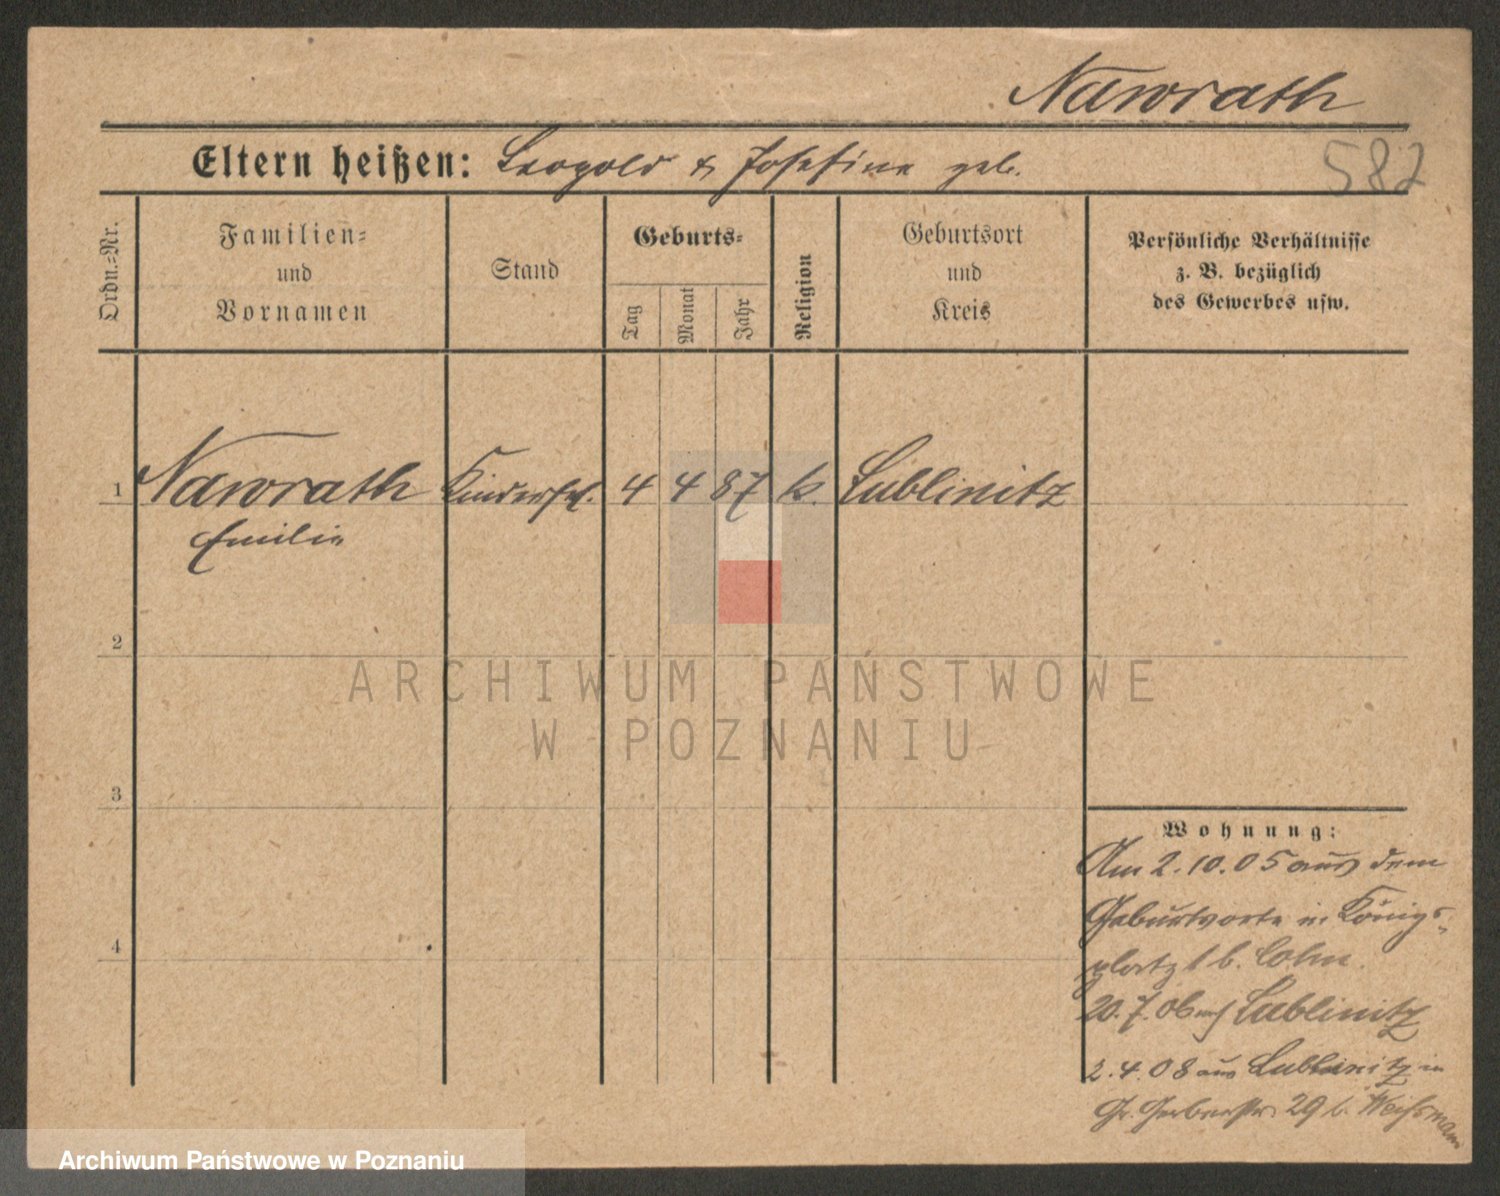 Nawrath
582
Eltern heißen: Leopold & Josefine geb.
Ordn.=Nr.
Familien=
und
Vornamen
Stand
Geburts=
Tag
Monat
Jahr
Religion
Geburtsort
und
Kreis
Persönliche Verhältnisse
z. B. bezüglich
des Gewerbes usw.
1 Nawrath Kinderfrl. 4 4 87 k. Lublinitz
Emilie
2
3
4
Wohnung:
Am 2.10.05 aus dem
Geburtsorte in Königs-
platz 1 b. Cohn.
20.7.06 nach Lublinitz
2.4.08 aus Lublinitz in
Gr. Gerberstr. 29 b. Weissmann
ARCHIWUM PAŃSTWOWE
W POZNANIU
Archiwum Państwowe w Poznaniu